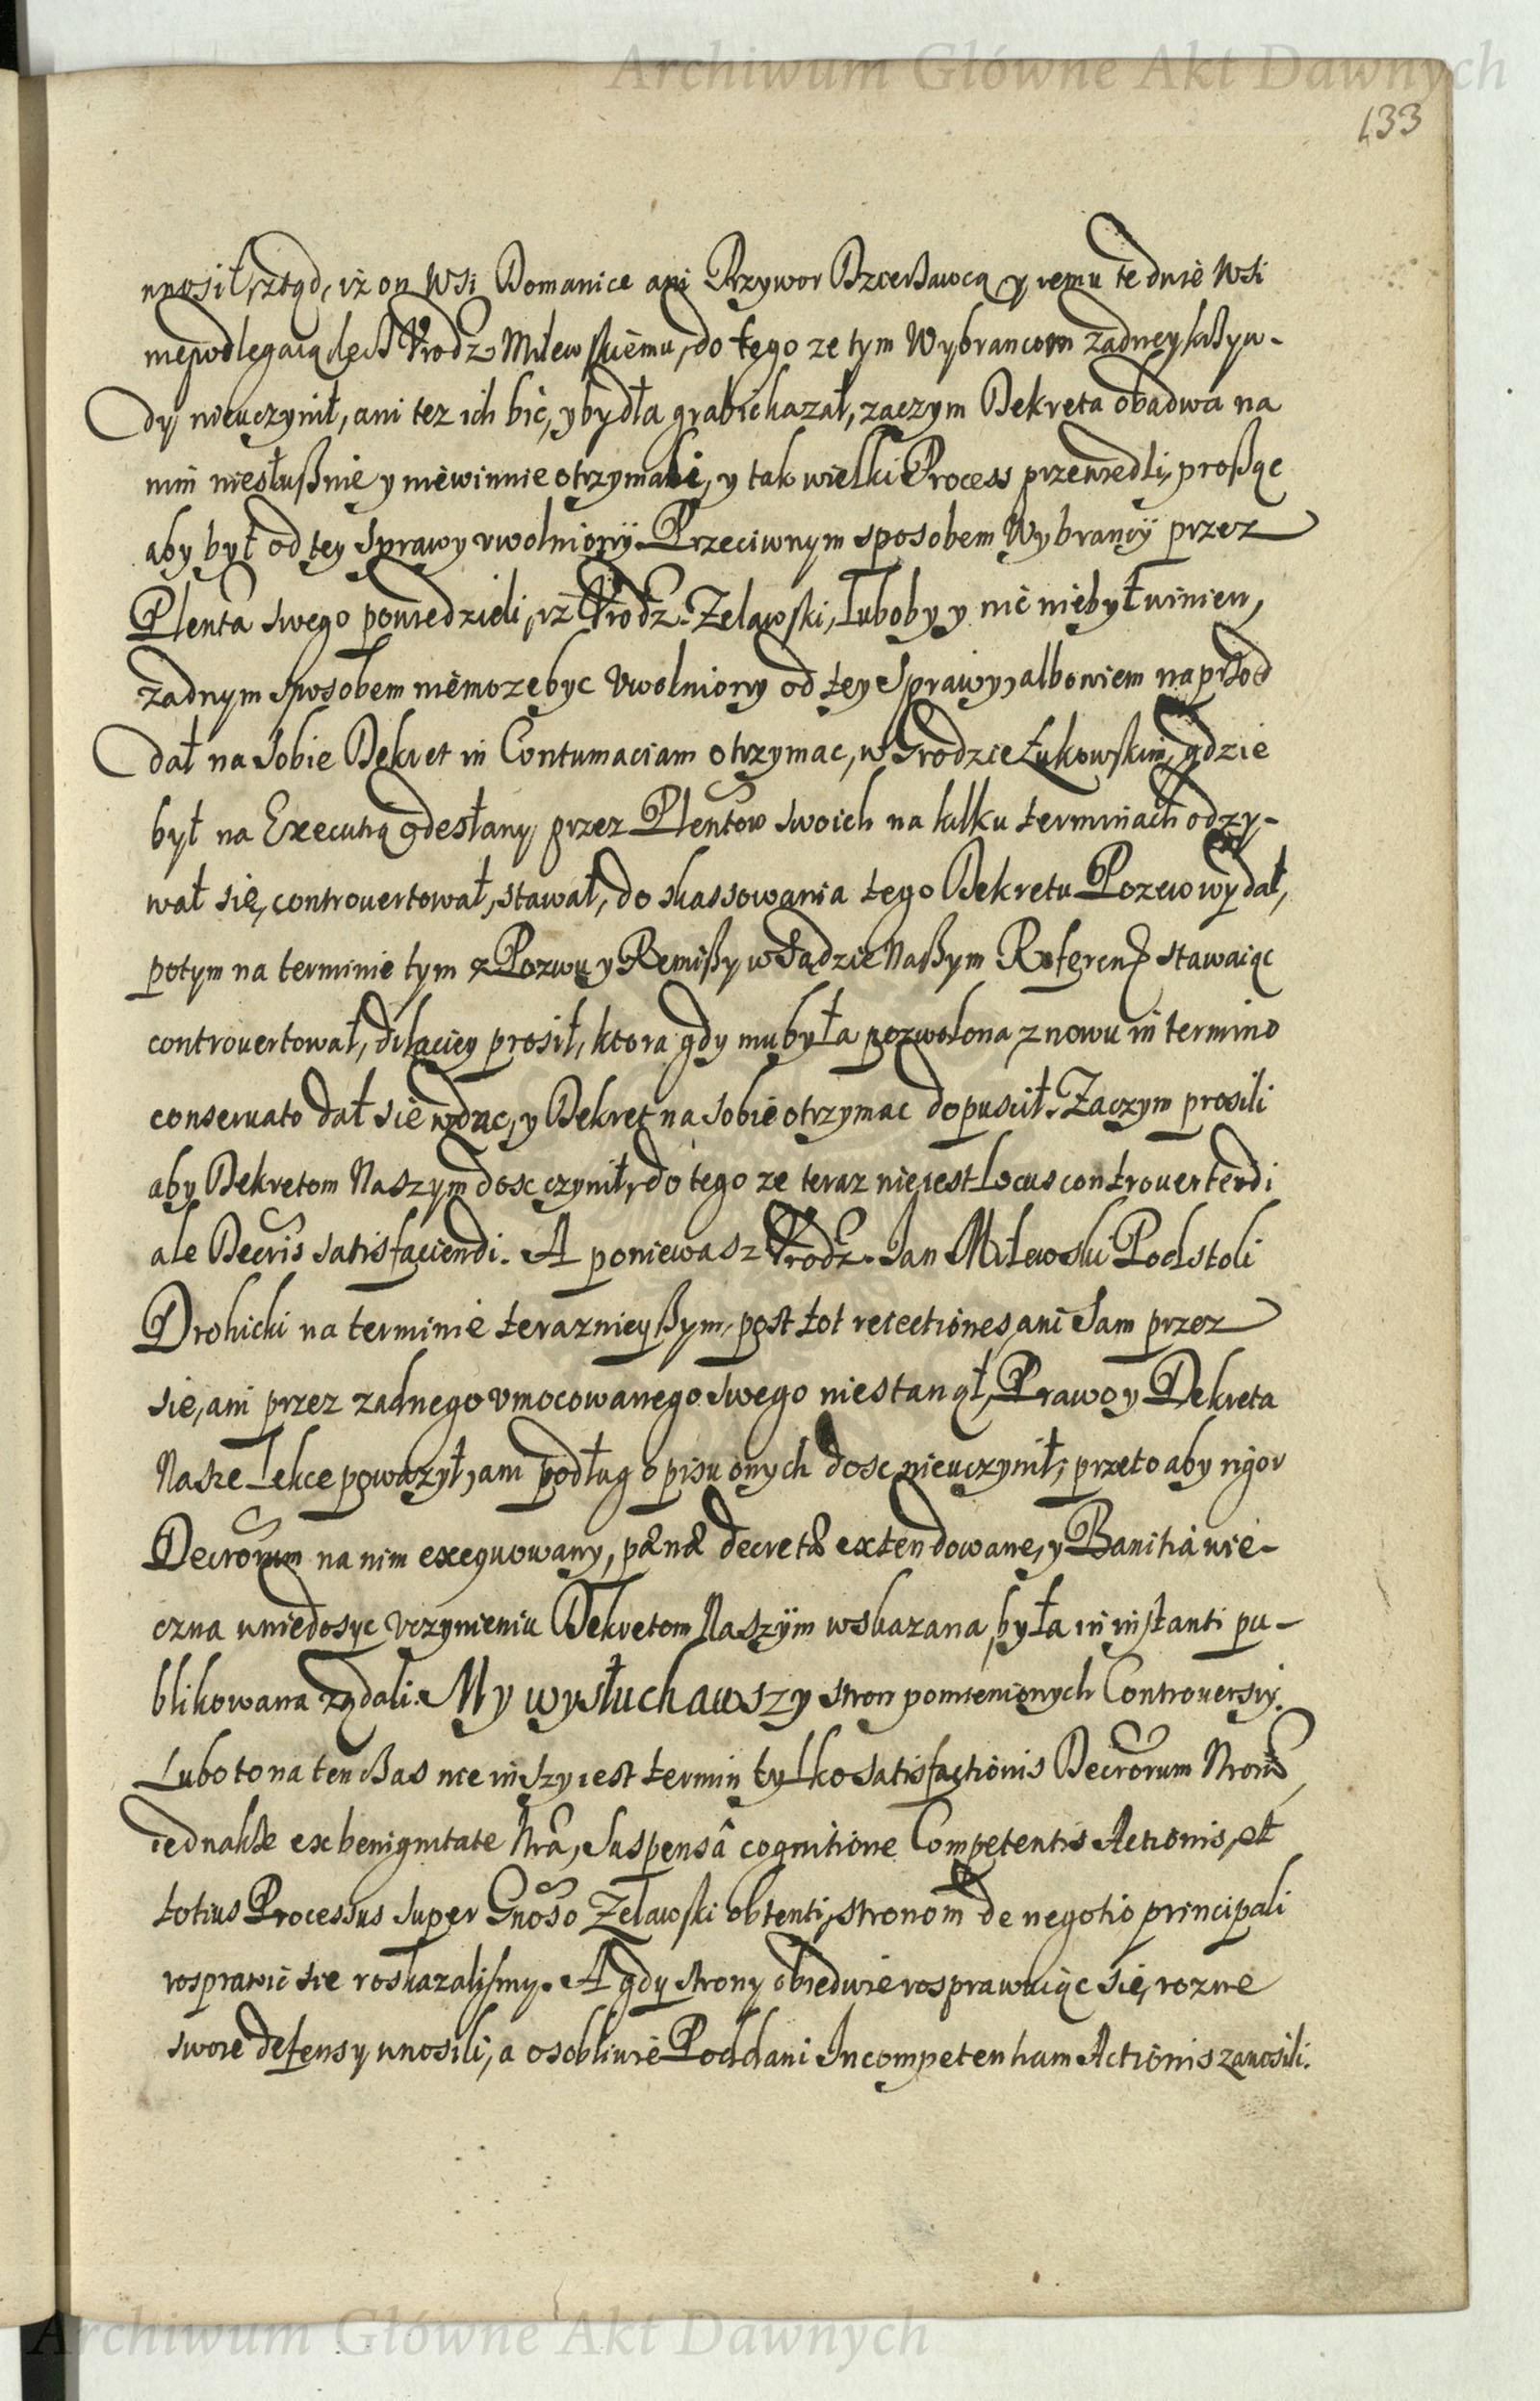 Archiwum Główne Akt Dawnych
133
wnosił, ztąd, iż on Wsi Domanice ani Przywor y iemu te dwie Wsi
niepodlegaią lecz Vrodz. Milewskiemu, do tego ze tym Wybrancom zadney krzyw-
dy nieuczynił, ani tez ich bić, y bydła grabić kazał, zaczym Dekreta obadwa na
nim niesłußnie y niewinnie otrzymali, y tak wielki Process przewiedli, proßąc
aby był od tey Sprawy vwolniony. Przeciwnym sposobem Wybrancy przez
Plenta swego powiedzieli, iż Vrodz. Zelawski, luboby y nic niebył winien,
zadnym sposobem niemoze byc Vwolniony od tey Sprawy, albowiem naprzod
dał na Sobie Dekret in Contumaciam otrzymac, w Grodzie Łukowskim, gdzie
był na Executią odesłany przez Plentow swoich na kilku terminach odzy-
wał się, controvertował, stawał, do skassowania tego Dekretu Pozew wydał,
potym na terminie tym z Pozwu y Remißy w Sądzie Naßym Referen. stawaiąc
controvertował, dilaciey prosił, ktora gdy mu była pozwolona znowu in termino
conservato dał sie wzdac, y Dekret na Sobie otrzymac dopuscił. Zaczym prosili
aby Dekretom Naszym dosc czynił, do tego ze teraz nie iest Locus controvertendi
ale Decris satisfaciendi. A poniewasz Vrodz. Jan Milewski Podstoli
Drohicki na terminie teraznieyßym, post tot reiectiones ani Sam przez
sie, ani przez zadnego vmocowanego swego niestanął, Prawo y Dekreta
Nasze Lekce powazył, ani podług opisu onych dosc nieuczynił, przeto aby rigor
Decrorum na nim exequowany, pænæ decretæ extendowane, y Banitia wie-
czna w niedosyc vczynieniu Dekretom Naszym wskazana, była in instanti pu-
blikowana ządali. My wysłuchawszy stron pomienionych Controversiy.
Lubo to na ten czas nie inszy iest termin tylko satisfactionis Decrorum Nrorum,
iednakże ex benignitate Nrâ, Suspensâ cognitione Competentis Actionis, et
totius Processus super Gnoso Zelawski obtenti, stronom de negotio principali
rosprawić sie roskazalismy. A gdy strony obiedwie rosprawuiąc się, rozne
swoie defensy wnosili, a osobliwie Poddani Incompetentiam Actionis zanosili.
Archiwum Główne Akt Dawnych